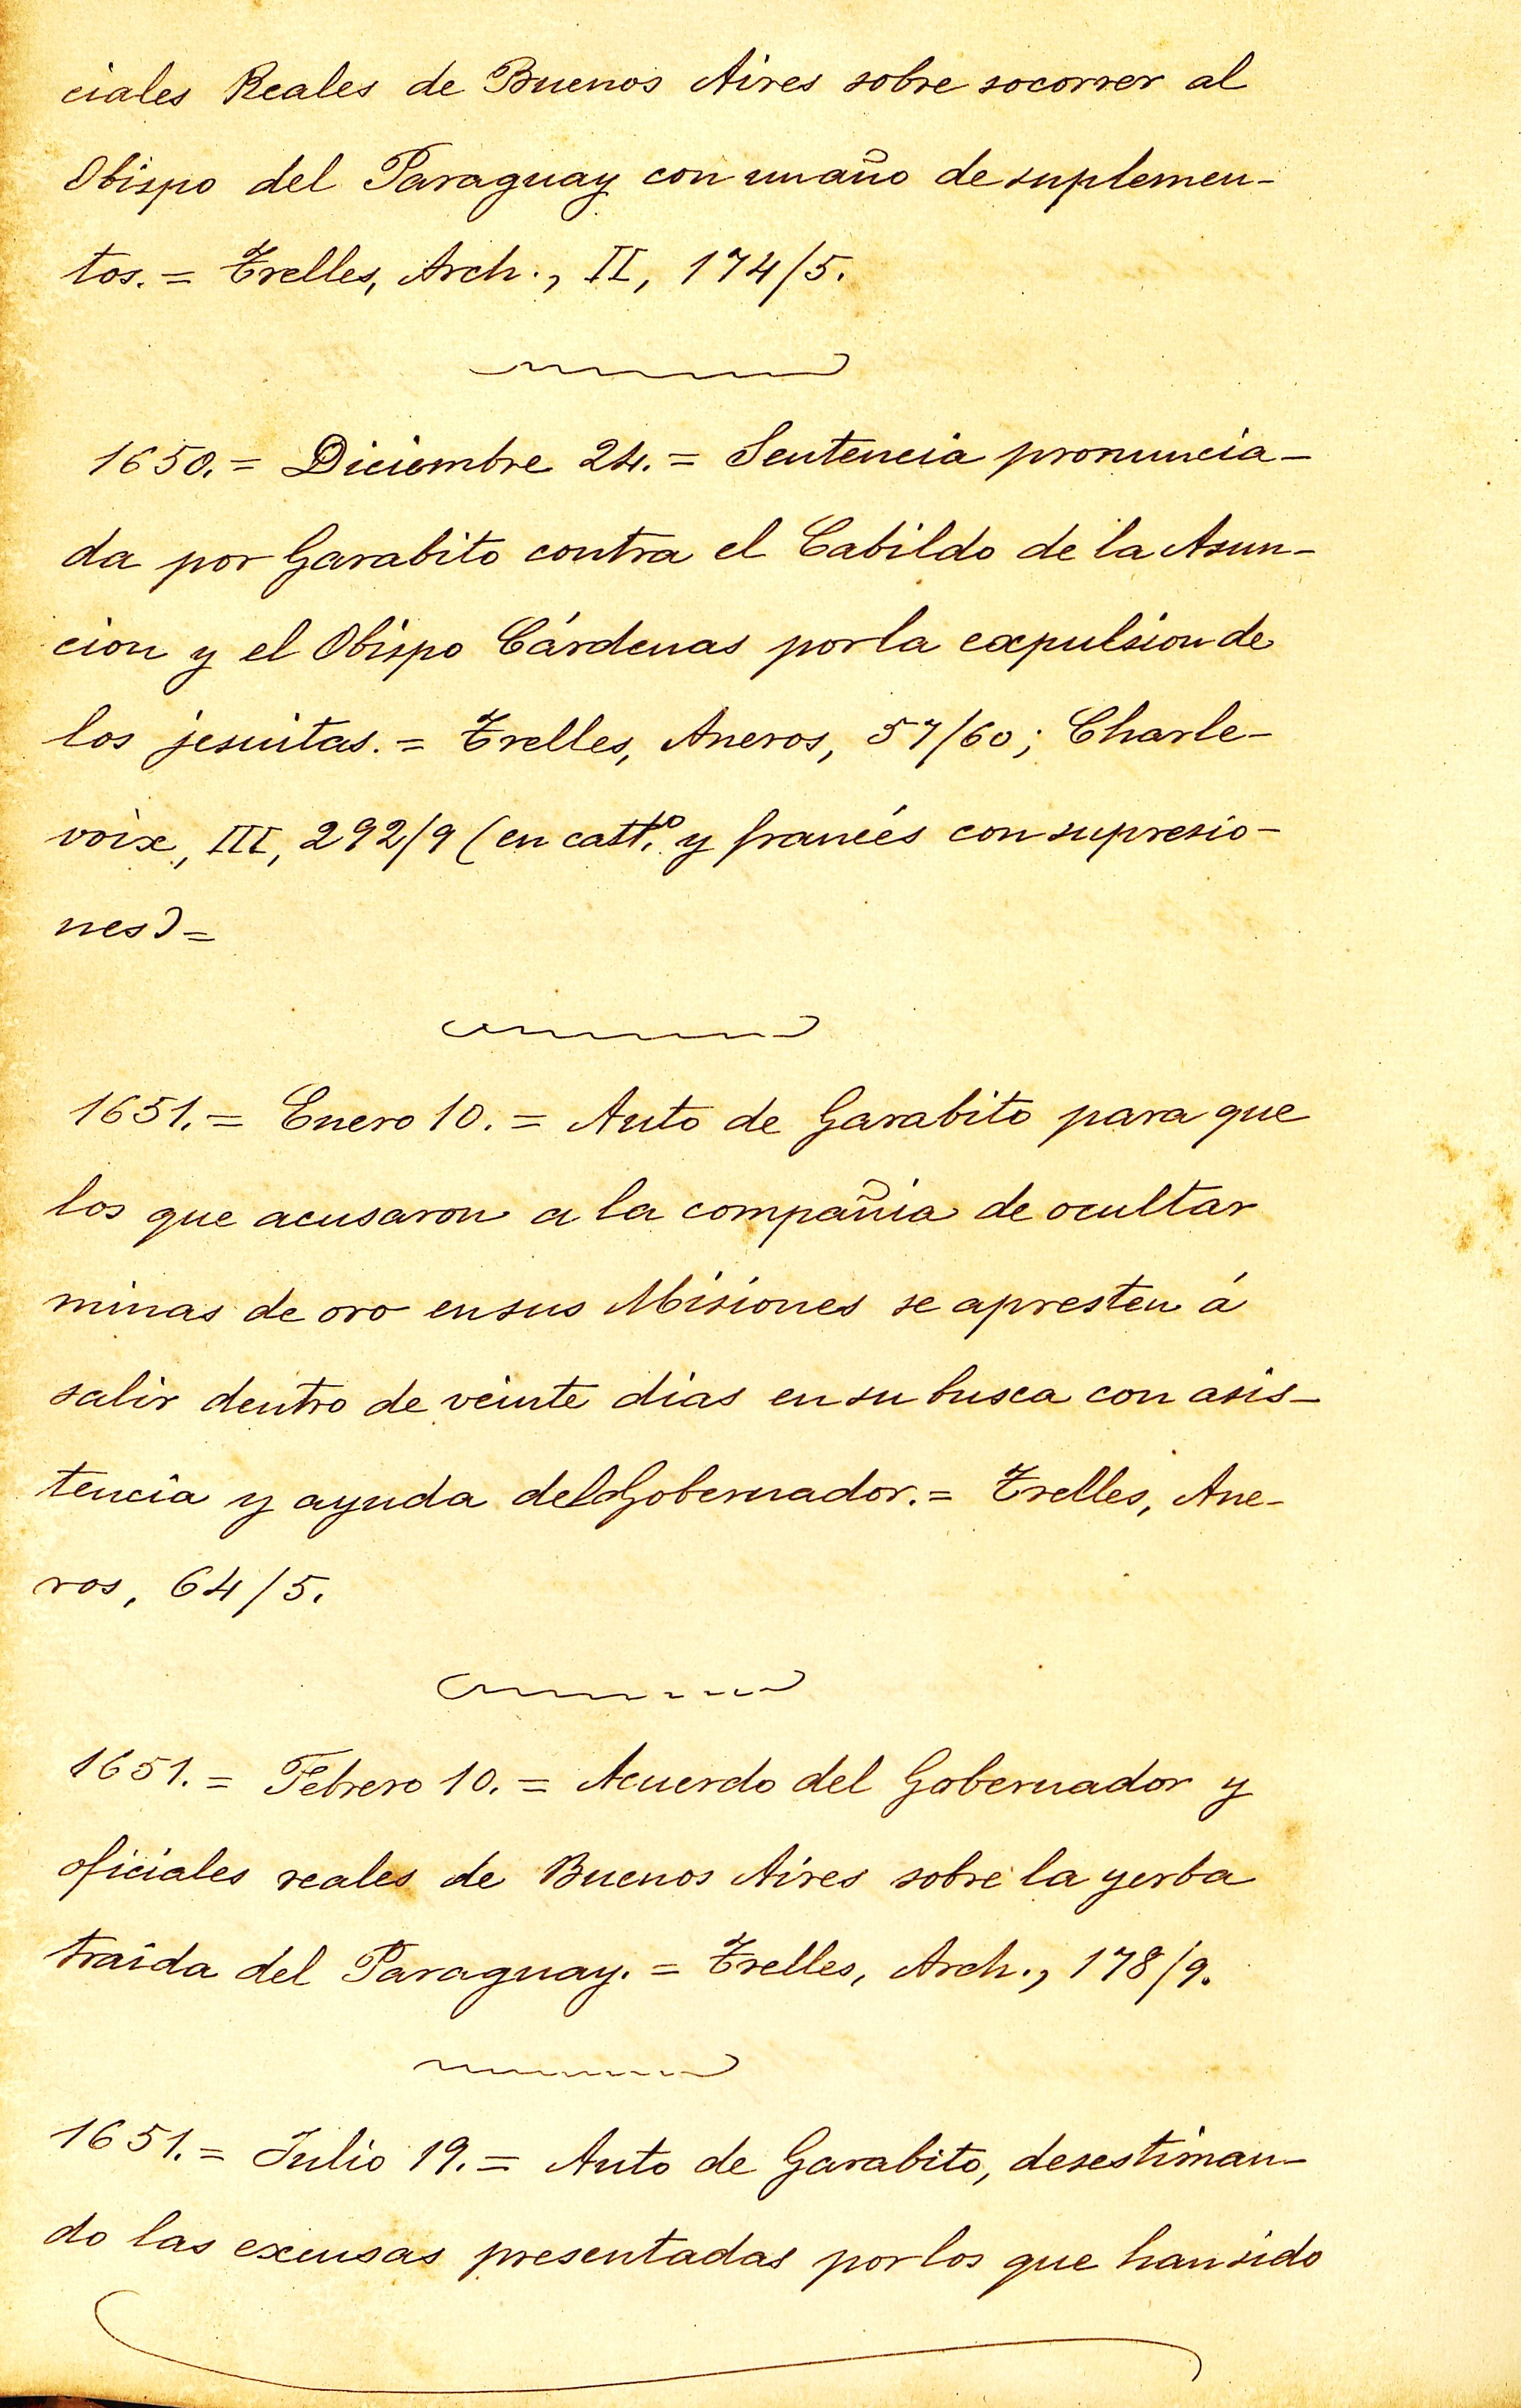 ciales Reales de Buenos Aires sobre socorrer al
Obispo del Paraguay con un año de suplemen-
tos. = Trelles, Arch., II, 174/5.
1650. = Diciembre 24. = Sentencia pronuncia-
da por Garabito contra el Cabildo de la Asun-
cion y el Obispo Cárdenas por la expulsion de
los jesuitas. = Trelles, Aneros, 57/60; Charle-
voix, III, 292/9 (en castº. y francés con supresio-
nes) =
1651. = Enero 10. = Auto de Garabito para que
los que acusaron a la compañia de ocultar
minas de oro en sus Misiones se apresten á
salir dentro de veinte dias en su busca con asis-
tencia y ayuda del Gobernador. = Trelles, Ane-
ros, 64/5.
1651. = Febrero 10. = Acuerdo del Gobernador y
oficiales reales de Buenos Aires sobre la yerba
traida del Paraguay. = Trelles, Arch., 178/9.
1651. = Julio 19. = Auto de Garabito, desestiman-
do las excusas presentadas por los que han sido